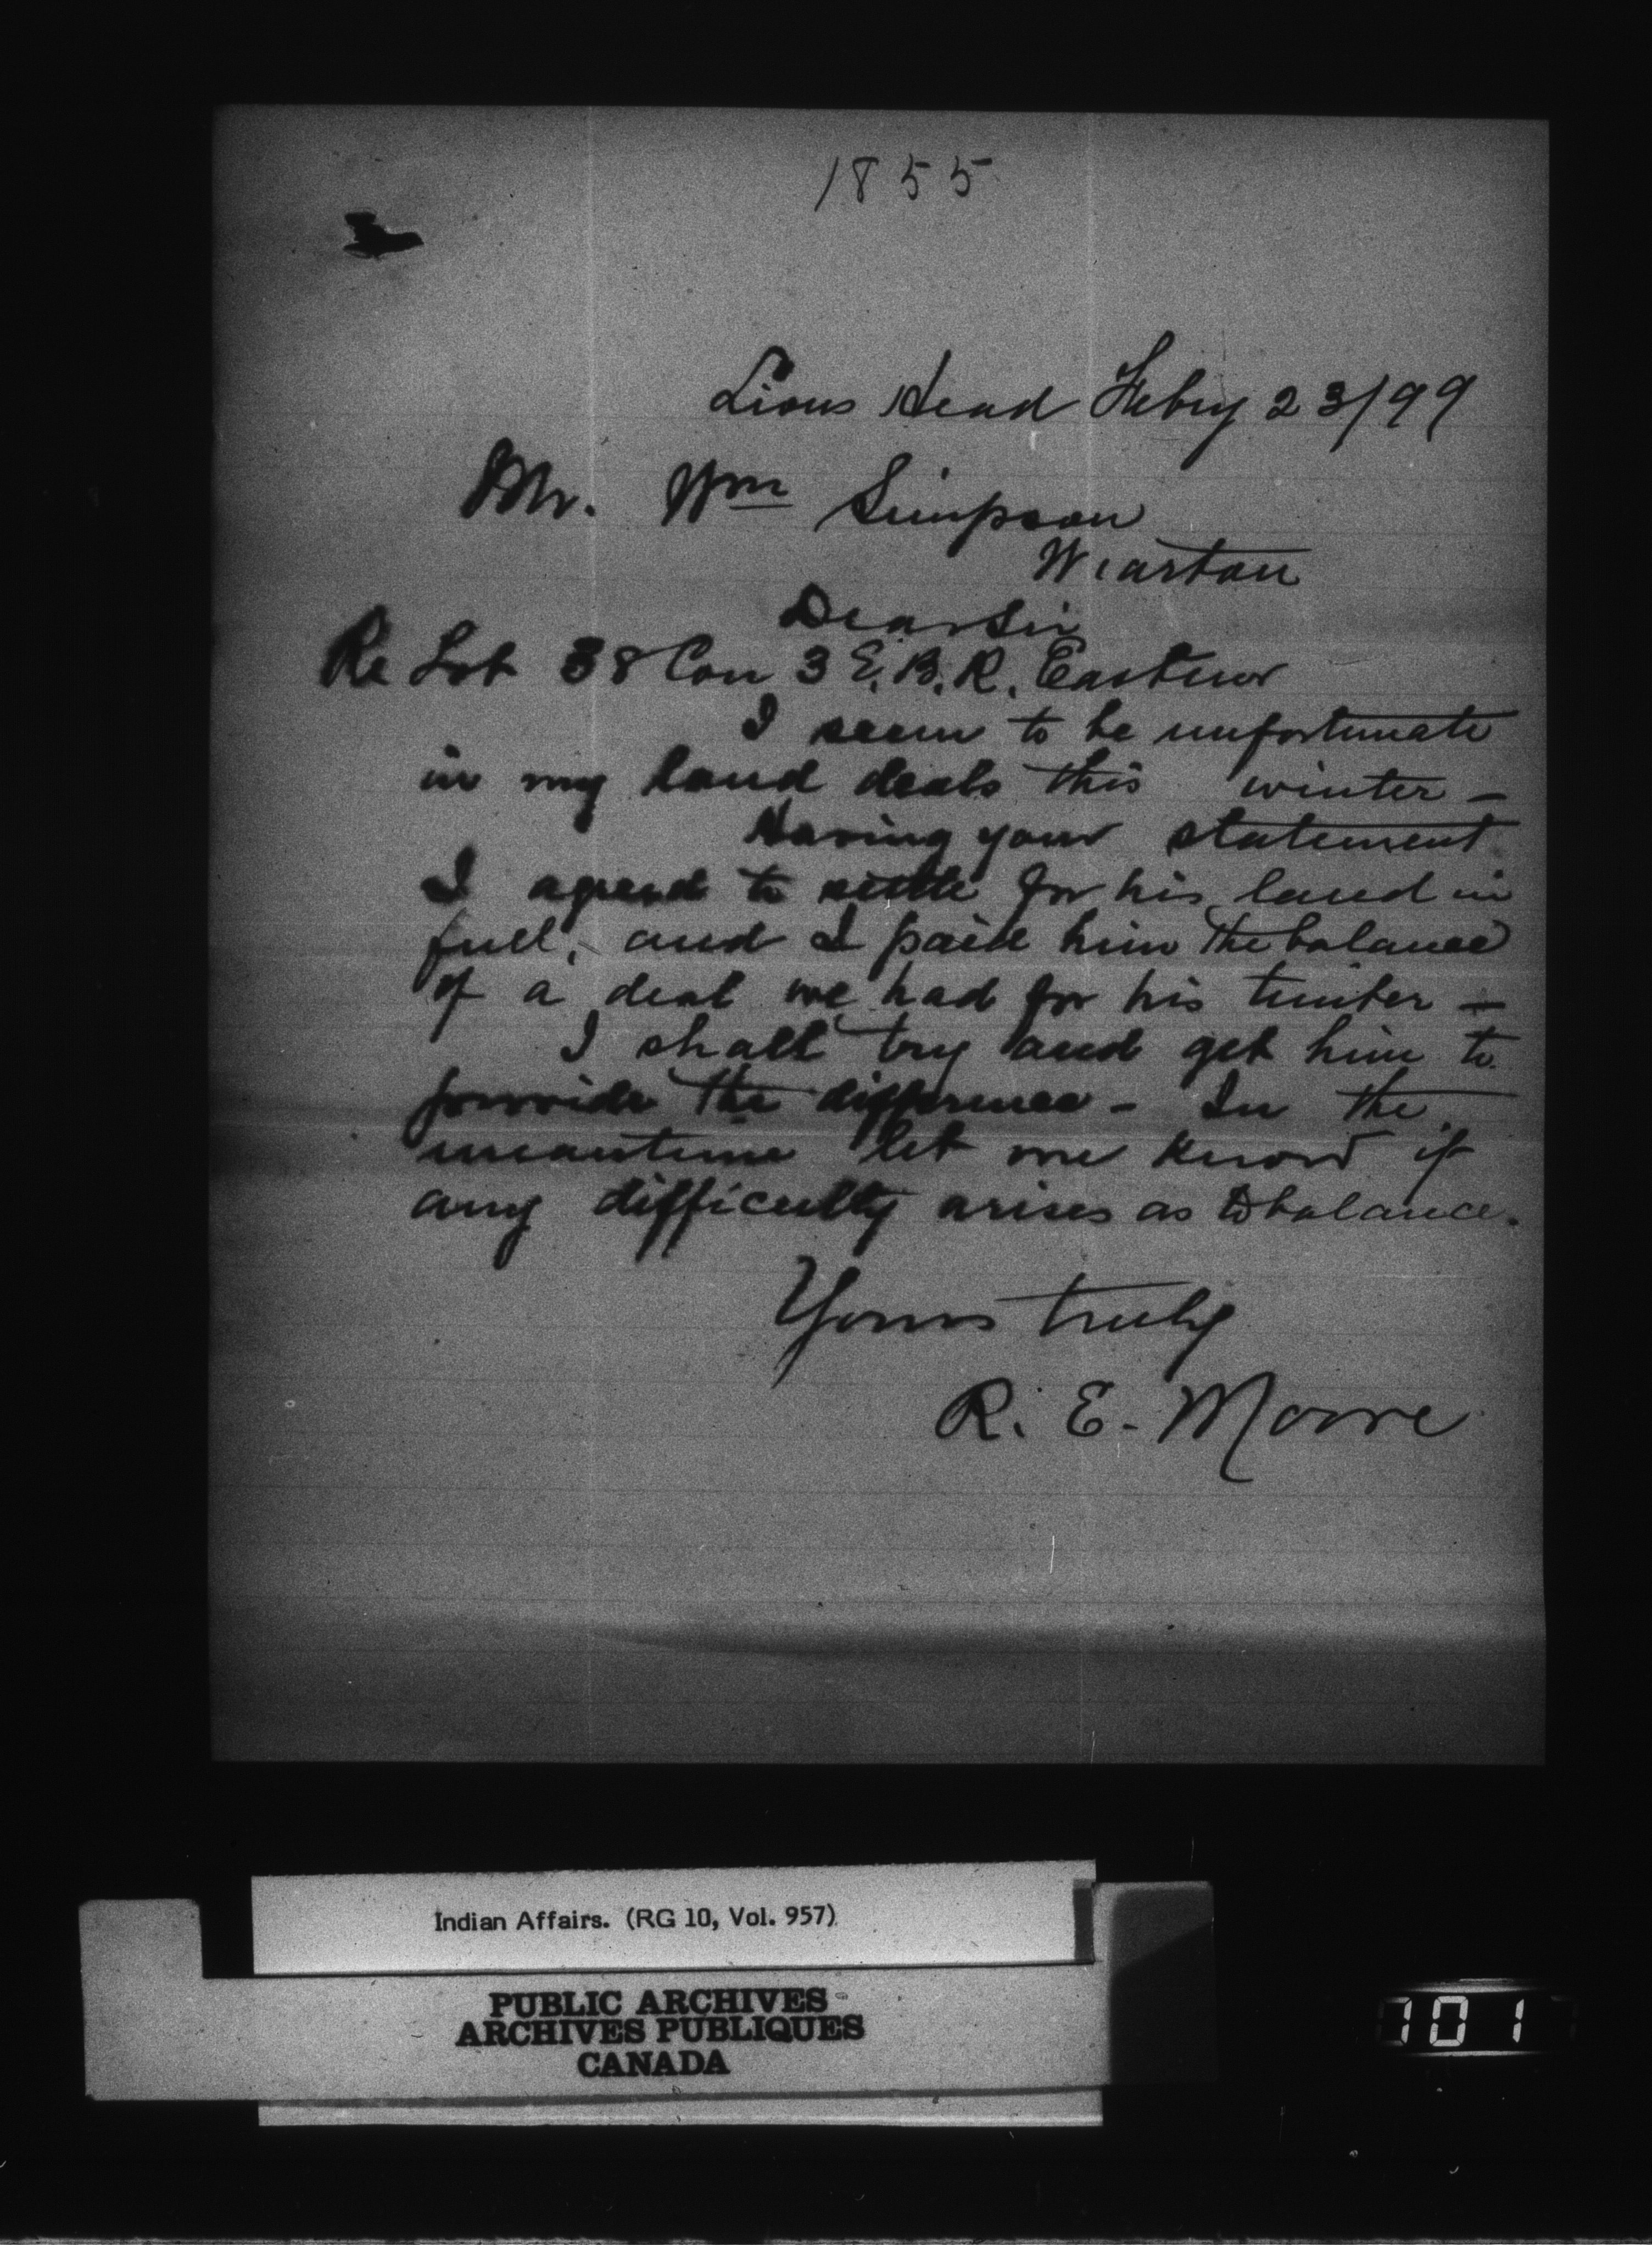 1855
Lions Head Feby 23/99
Mr. Wm Simpson
Wiarton
Dear Sir
Re Lot 38 Con 3 E.B.R. Eastnor
I seem to be unfortunate
in my land deals this winter –
Having your statement
I agreed to settle for his land in
full, and I paid him the balance
of a deal we had for his timber –
I shall try and get him to
provide the difference – In the
meantime let me know if
any difficulty arises as to balance.
Yours truly
R. E. Moore
Indian Affairs. (RG 10, Vol. 957)
PUBLIC ARCHIVES
ARCHIVES PUBLIQUES
CANADA
701